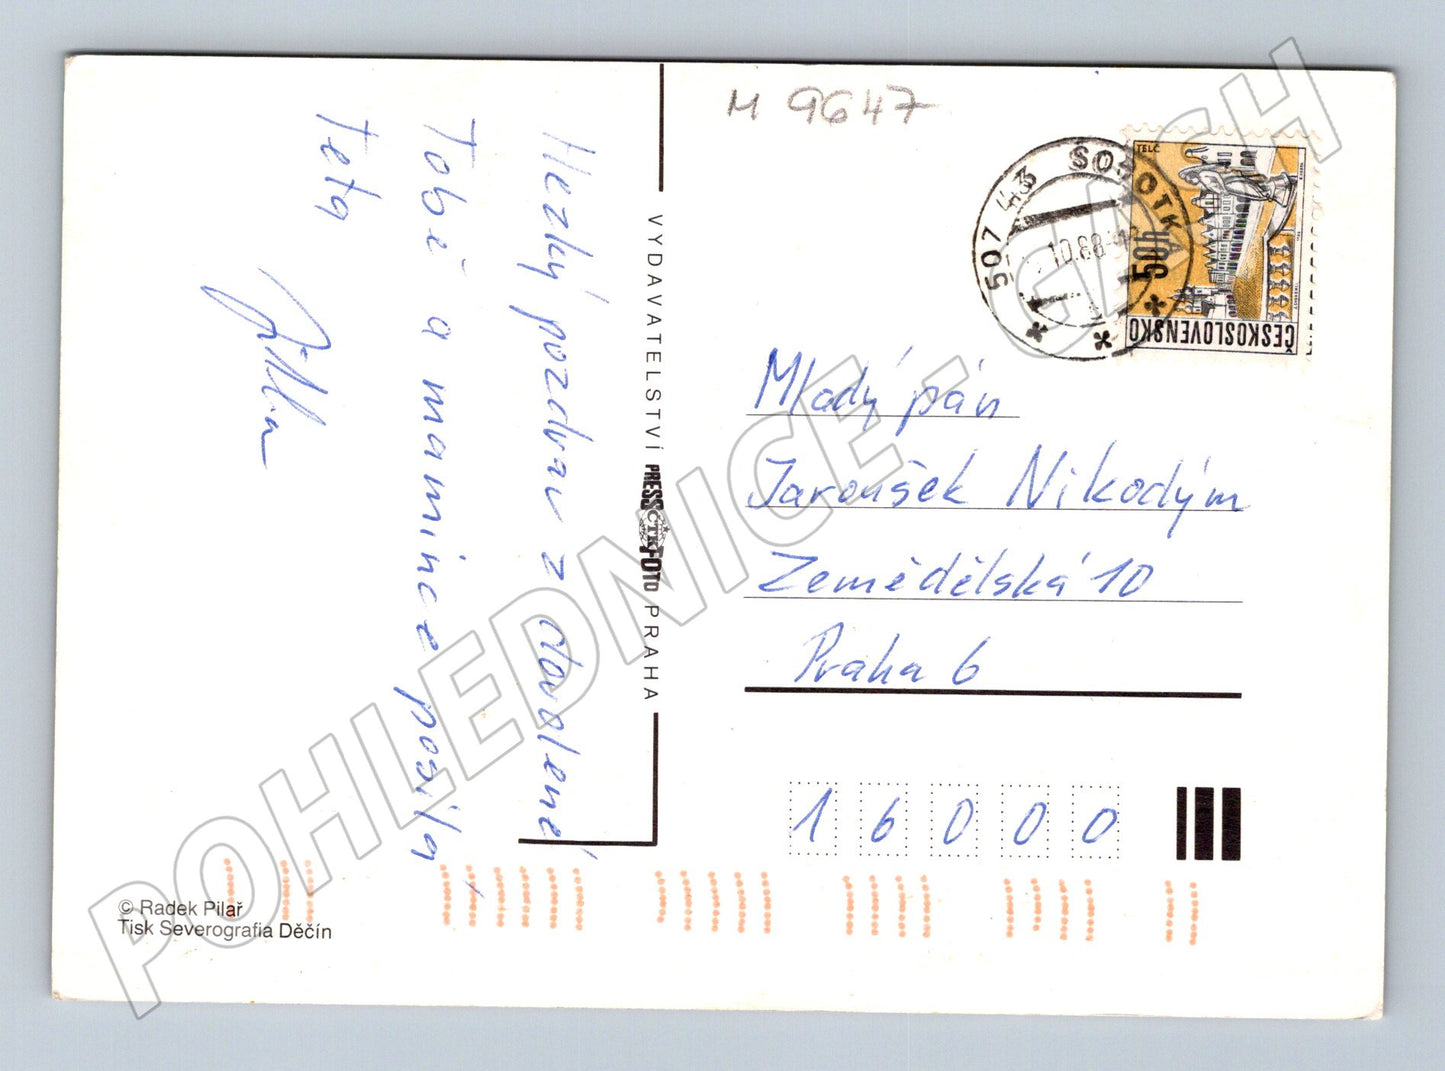 M 9647
507 43 SOBOTKA
10.88
TELČ
50h
ČESKOSLOVENSKO
Hezký pozdrav z dovolené
Tobě a mamince posílá
teta
VYDAVATELSTVÍ PRESSFOTO PRAHA
ČTK
Mladý pán
Jaroušek Nikodým
Zemědělská 10
Praha 6
16000
© Radek Pilař
Tisk Severografia Děčín
POHLEDNICE - GASH